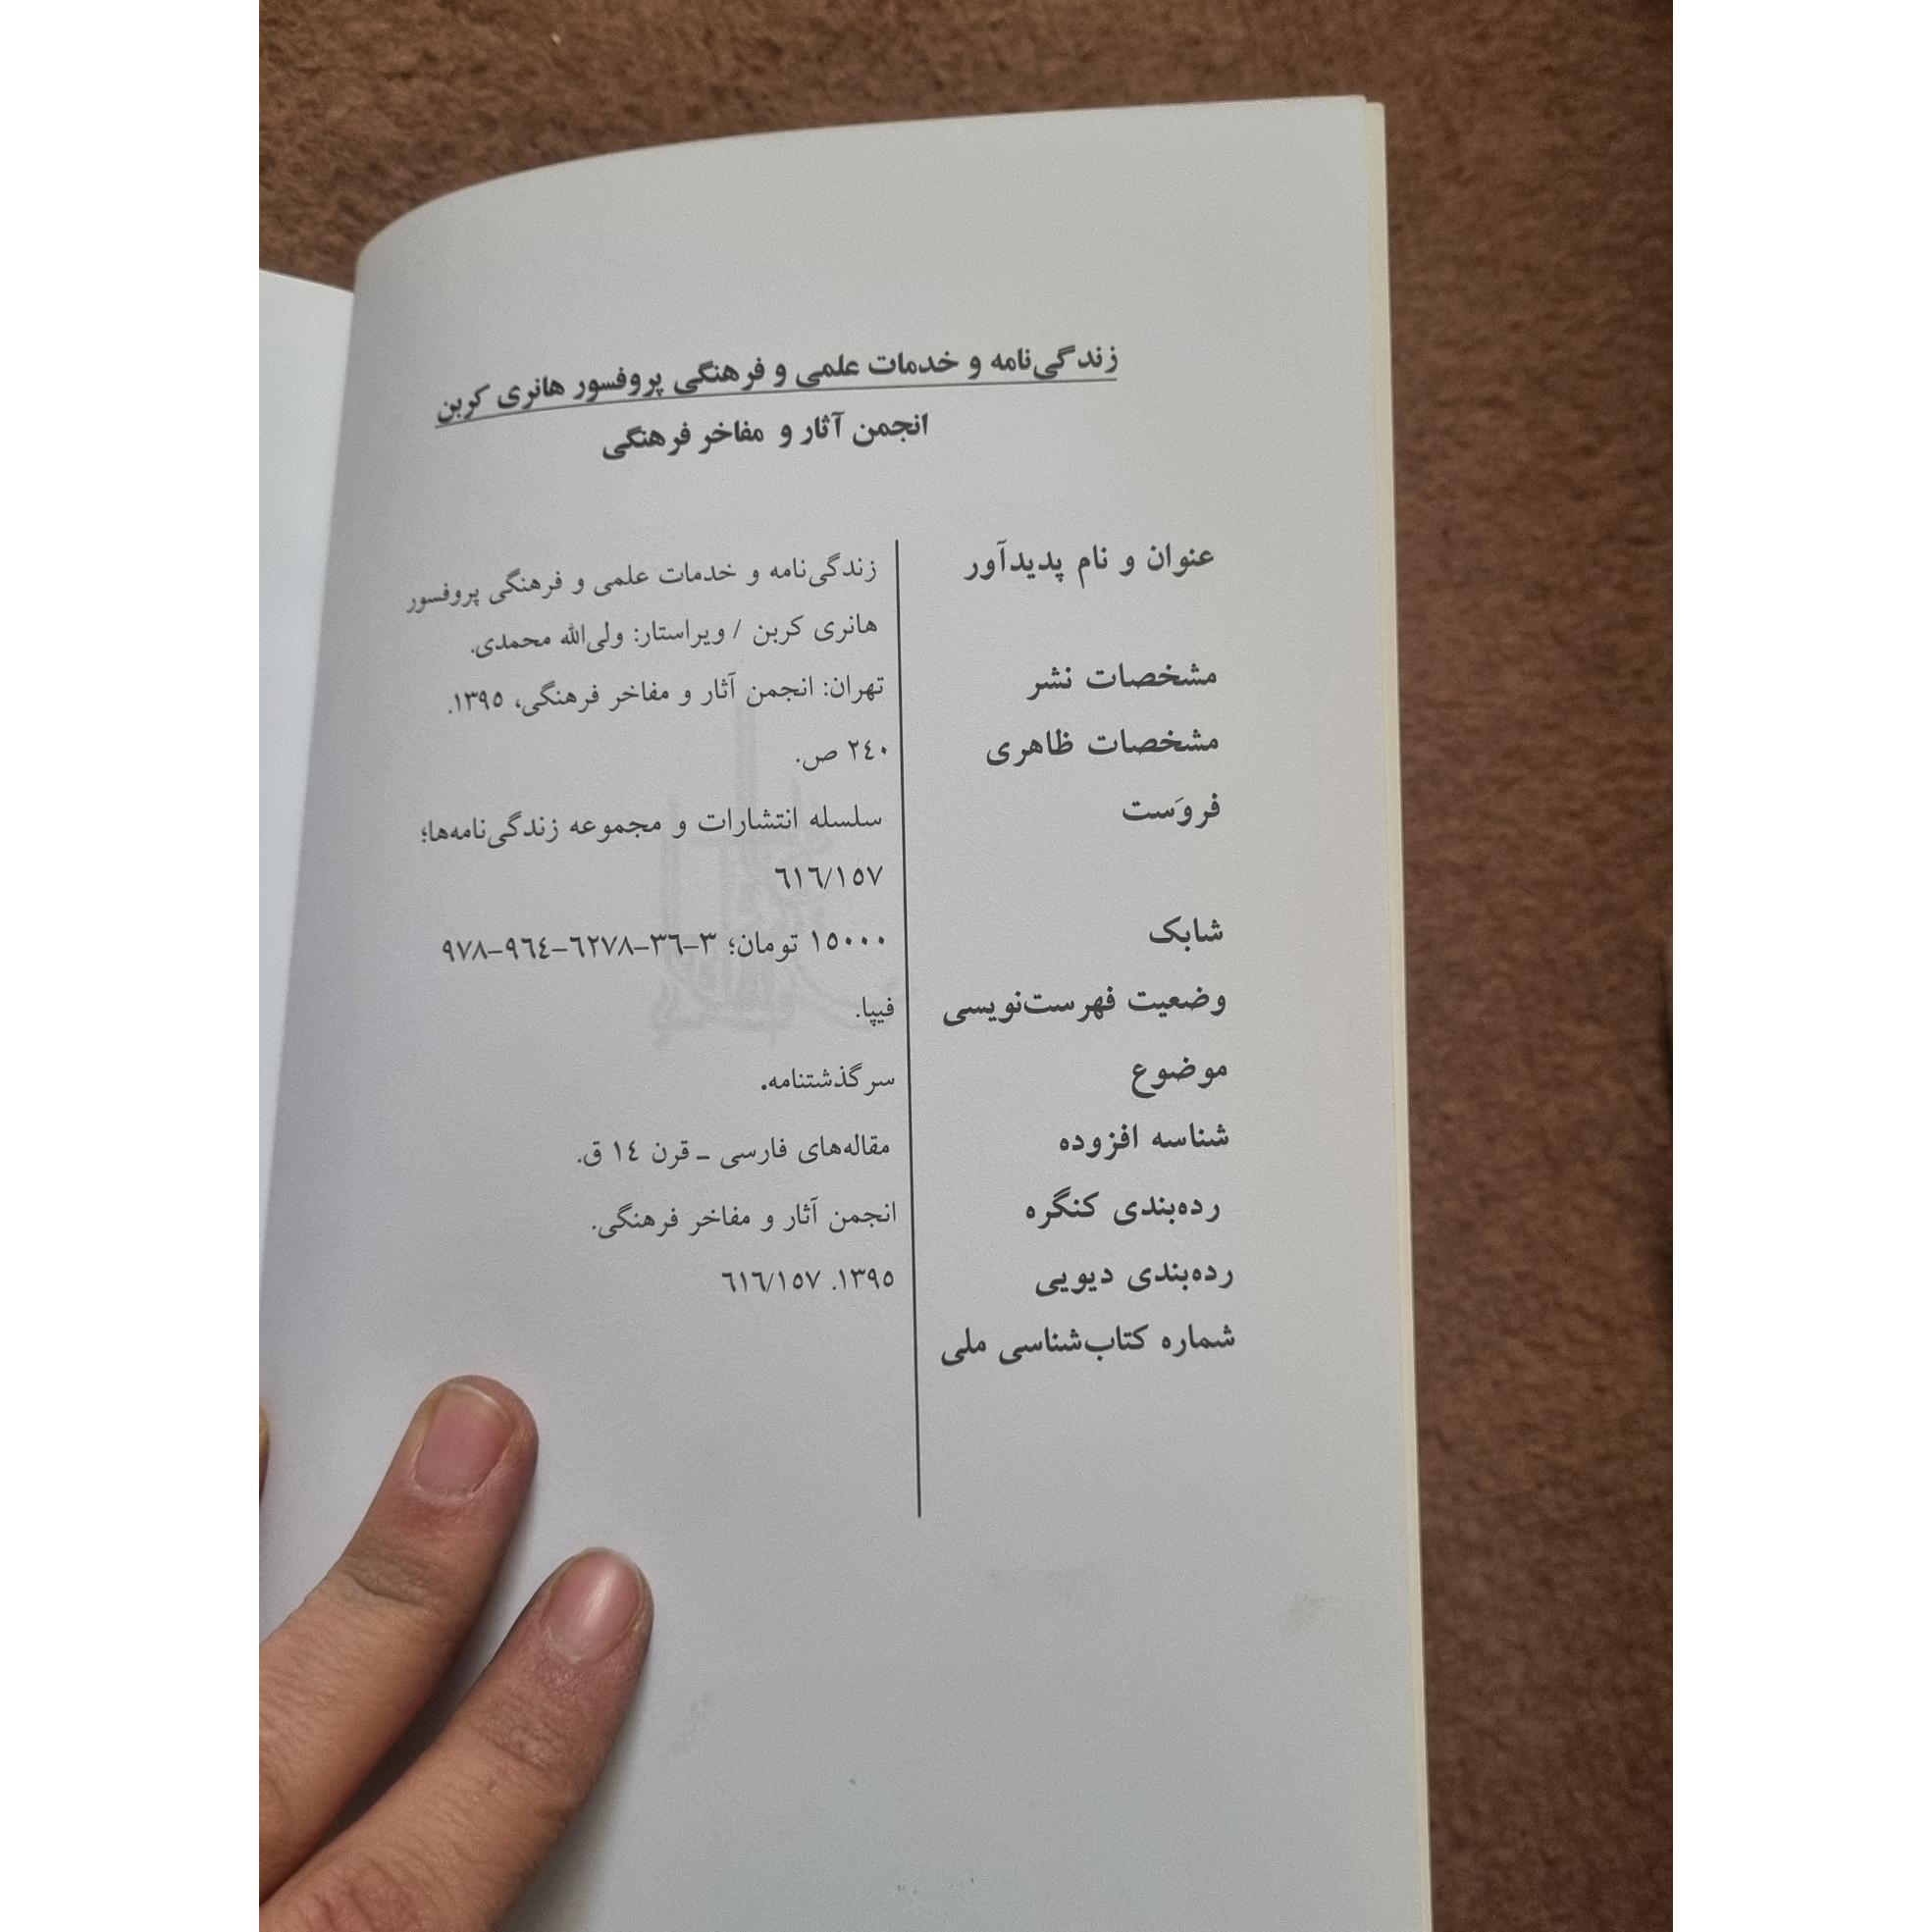 زندگی‌نامه و خدمات علمی و فرهنگی پروفسور هانری کربن
انجمن آثار و مفاخر فرهنگی
عنوان و نام پدیدآور
زندگی‌نامه و خدمات علمی و فرهنگی پروفسور
هانری کربن / ویراستار: ولی‌الله محمدی.
مشخصات نشر
تهران: انجمن آثار و مفاخر فرهنگی، ١٣٩٥.
مشخصات ظاهری
٢٤٠ ص.
فروَست
سلسله انتشارات و مجموعه زندگی‌نامه‌ها؛
٦١٦/١٥٧
شابک
١٥٠٠٠ تومان؛ ٣-٣٦-٦٢٧٨-٩٦٤-٩٧٨
وضعیت فهرست‌نویسی
فیپا.
موضوع
سرگذشتنامه.
شناسه افزوده
مقاله‌های فارسی ـ قرن ١٤ ق.
رده‌بندی کنگره
انجمن آثار و مفاخر فرهنگی.
رده‌بندی دیویی
١٣٩٥. ٦١٦/١٥٧
شماره کتاب‌شناسی ملی